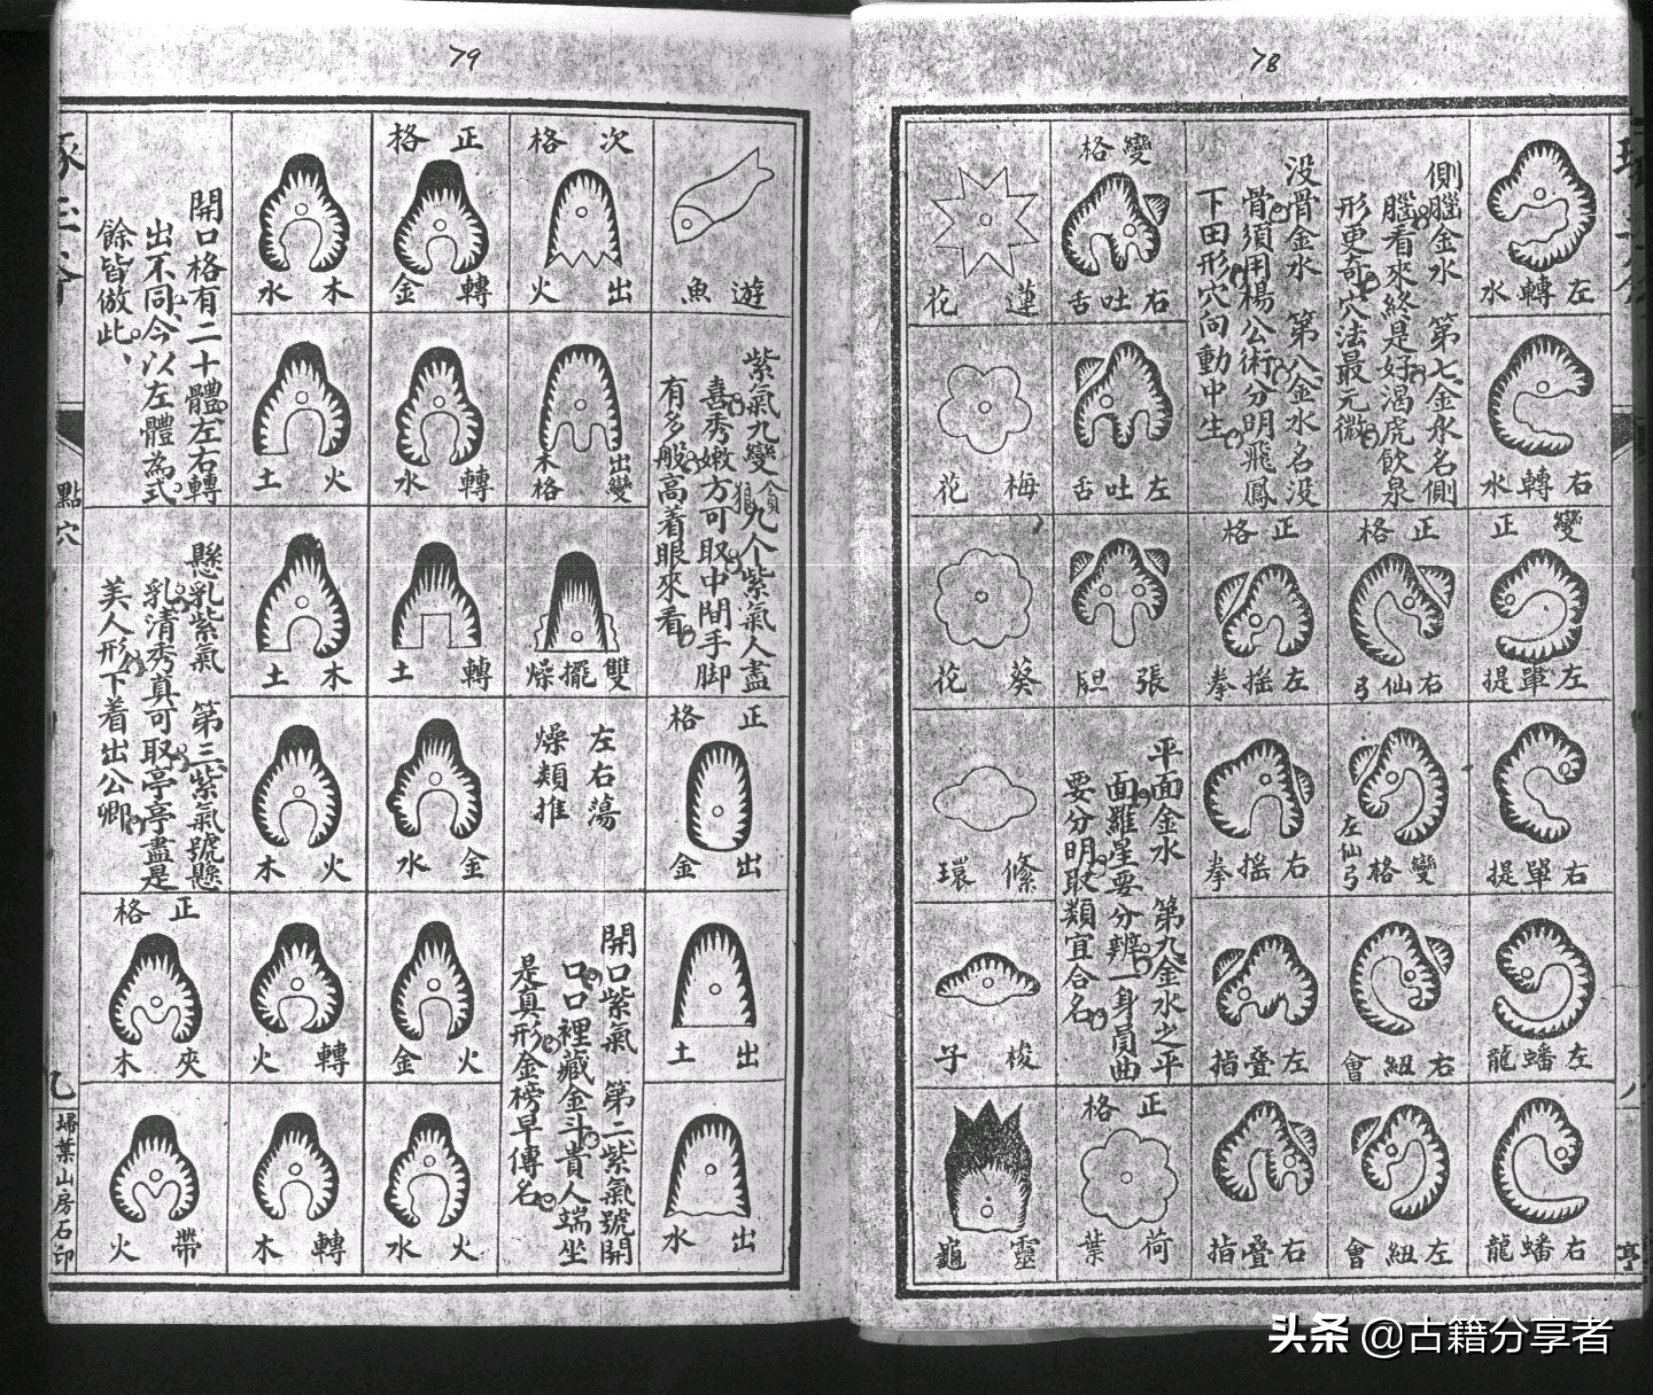 78
左轉水
右轉水
變正
左單提
右單提
左蟠龍
右蟠龍
側腦金水　第七金水名側
腦看來終是好渴虎飲泉
形更奇穴法最元微
正格
右仙弓
變格
左仙弓
右紐會
左紐會
没骨金水　第八金水名没
骨須用楊公術分明飛鳳
下田形穴向動中生
正格
左摇拳
右摇拳
左叠指
右叠指
變格
右吐舌
左吐舌
張胆
平面金水　第九金水之平
面羅星要分辨一身員曲
要分明取類宜合名
正格
荷葉
蓮花
梅花
葵花
絛環
梭子
靈龜
79
遊魚
紫氣九變貪狼九个紫氣人盡
喜秀嫩方可取中間手脚
有多般高着眼來看
正格
出金
出土
出水
次格
出火
出變木格
雙擺燥
左右蕩
燥類推
開口紫氣　第二紫氣號開
口口裡藏金斗貴人端坐
是真形金榜早傳名
正格
轉金
轉水
轉土
金水
火金
火水
木水
火土
木土
火木
轉火
轉木
開口格有二十體左右轉
出不同今以左體為式
餘皆倣此
懸乳紫氣　第三紫氣號懸
乳清秀真可取亭亭盡是
美人形下着出公卿
正格
夾木
帶火
點穴
掃葉山房石印
头条 @古籍分享者